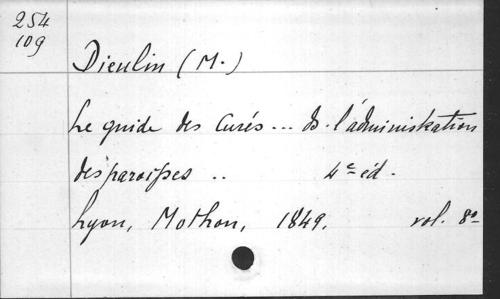 254
109
Dieulin (M.)
Le guide des Curés ... ds. l'administration
des paroisses .. 4e éd.
Lyon, Mothon, 1849. vol. 8o